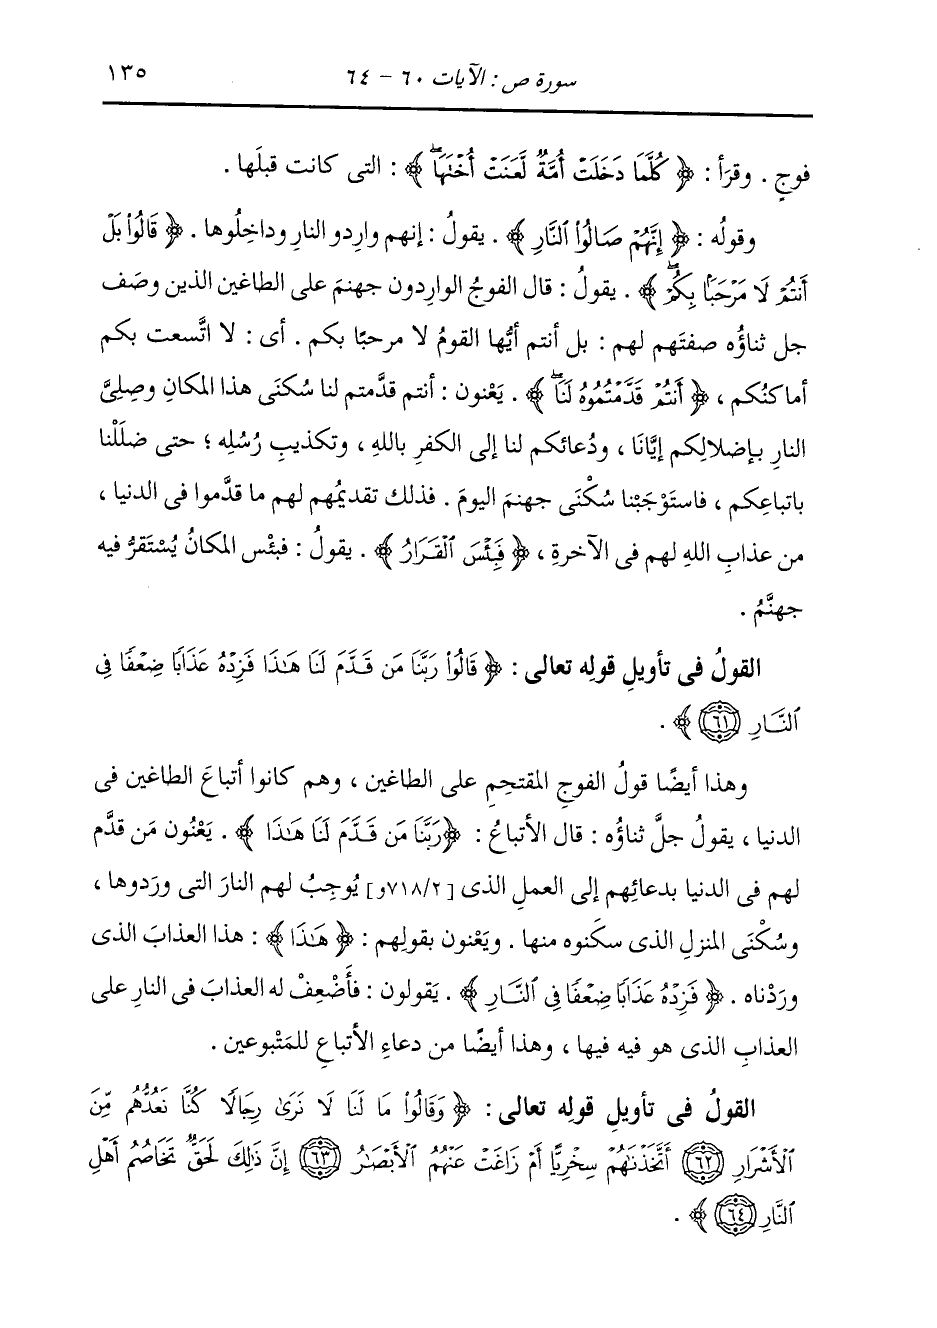 سورة ص : الآيات ٦٠ - ٦٤ ١٣٥
فوجٍ . وقرَأ : ﴿ كُلَّمَا دَخَلَتْ أُمَّةٌ لَّعَنَتْ أُخْتَهَا ﴾ : التى كانت قبلَها .
وقولُه : ﴿ إِنَّهُمْ صَالُوا۟ ٱلنَّارِ ﴾ . يقولُ : إنهم وارِدو النارِ وداخِلُوها . ﴿ قَالُوا۟ بَلْ
أَنتُمْ لَا مَرْحَبًۢا بِكُمْ ﴾ . يقولُ : قال الفوجُ الوارِدون جهنمَ على الطاغين الذين وصَف
جل ثناؤُه صفتَهم لهم : بل أنتم أيُّها القومُ لا مرحبًا بكم . أى : لا اتَّسعت بكم
أماكنُكم ، ﴿ أَنتُمْ قَدَّمْتُمُوهُ لَنَا ﴾ . يَعْنون : أنتم قدَّمتم لنا سُكنَى هذا المكانِ وصِلِىَّ
النارِ بإضلالِكم إيَّانَا ، ودُعائكم لنا إلى الكفرِ باللهِ ، وتكذيبِ رُسُلِه ؛ حتى ضلَلْنا
باتباعِكم ، فاستَوْجَبْنا سُكْنَى جهنمَ اليومَ . فذلك تقديمُهم لهم ما قدَّموا فى الدنيا ،
من عذابِ اللهِ لهم فى الآخرةِ ، ﴿ فَبِئْسَ ٱلْقَرَارُ ﴾ . يقولُ : فبئْس المكانُ يُسْتَقرُّ فيه
جهنَّمُ .
القولُ فى تأويلِ قولِه تعالى : ﴿ قَالُوا۟ رَبَّنَا مَن قَدَّمَ لَنَا هَـٰذَا فَزِدْهُ عَذَابًا ضِعْفًا فِى
ٱلنَّارِ ٦١ ﴾ .
وهذا أيضًا قولُ الفوجِ المقتحِمِ على الطاغين ، وهم كانوا أتباعَ الطاغين فى
الدنيا ، يقولُ جلَّ ثناؤُه : قال الأتباعُ : ﴿ رَبَّنَا مَن قَدَّمَ لَنَا هَـٰذَا ﴾ . يَعْنُون مَن قدَّم
لهم فى الدنيا بدعائِهم إلى العملِ الذى [٧١٨/٢و] يُوجِبُ لهم النارَ التى ورَدوها ،
وسُكْنَى المنزلِ الذى سكَنوه منها . ويَعْنون بقولِهم : ﴿ هَـٰذَا ﴾ : هذا العذابَ الذى
ورَدْناه . ﴿ فَزِدْهُ عَذَابًا ضِعْفًا فِى ٱلنَّارِ ﴾ . يَقولون : فأَضْعِفْ له العذابَ فى النارِ على
العذابِ الذى هو فيه فيها ، وهذا أيضًا من دعاءِ الأتباعِ للمَتْبوعين .
القولُ فى تأويلِ قولِه تعالى : ﴿ وَقَالُوا۟ مَا لَنَا لَا نَرَىٰ رِجَالًا كُنَّا نَعُدُّهُم مِّنَ
ٱلْأَشْرَارِ ٦٢ أَتَّخَذْنَـٰهُمْ سِخْرِيًّا أَمْ زَاغَتْ عَنْهُمُ ٱلْأَبْصَـٰرُ ٦٣ إِنَّ ذَٰلِكَ لَحَقٌّ تَخَاصُمُ أَهْلِ
ٱلنَّارِ ٦٤ ﴾ .